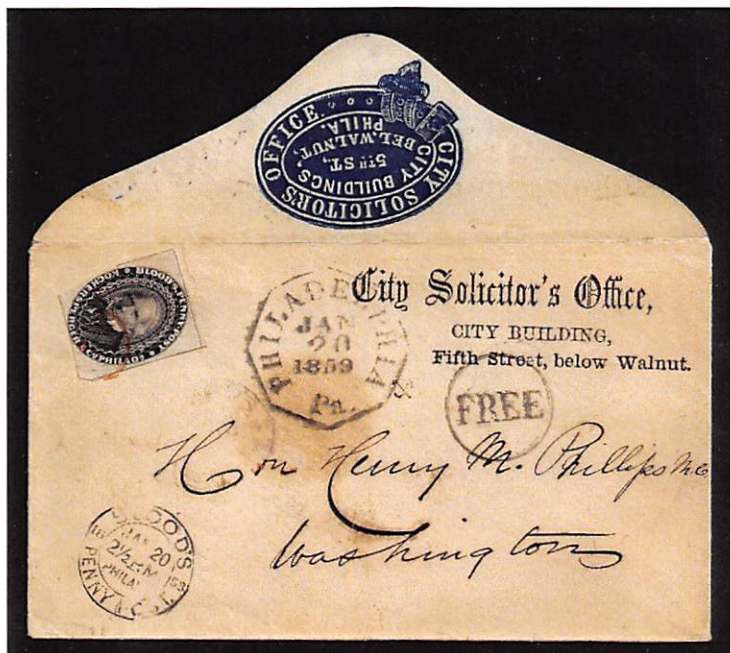 CITY SOLICITOR'S OFFICE
CITY BUILDINGS,
5TH ST.,
BEL. WALNUT,
PHILA.
BLOOD'S PENNY POST
KOCHERSPERGER
PHILADELPHIA
JAN
20
1859
Pa.
City Solicitor's Office,
CITY BUILDING,
Fifth Street, below Walnut.
FREE
Hon Henry M. Phillips M.C.
Washington
BLOOD'S
JAN 20
2½ P.M
PHILA
PENNY POST